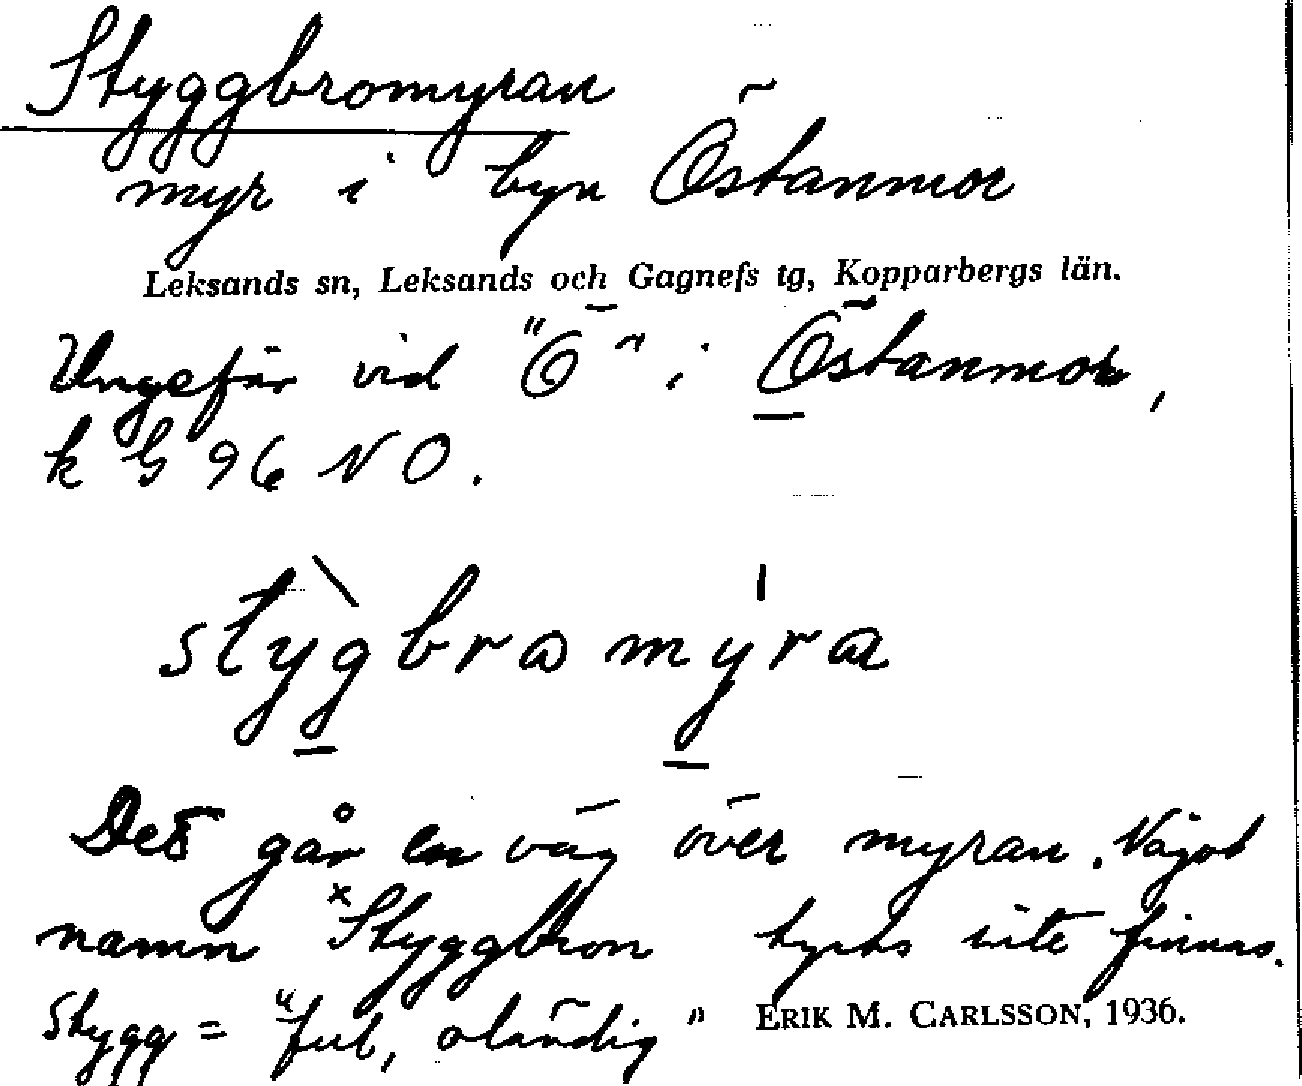 Styggbromyran
myr i byn Östanmor
Leksands sn, Leksands och Gagnefs tg, Kopparbergs län.
Ungefär vid "Ö" i Östanmor,
k G 96 NO.
stỳgbra mýra
Det går en väg över myran. Något
namn ×Styggbron tycks inte finnas.
Stygg = "ful, oländig" ERIK M. CARLSSON, 1936.